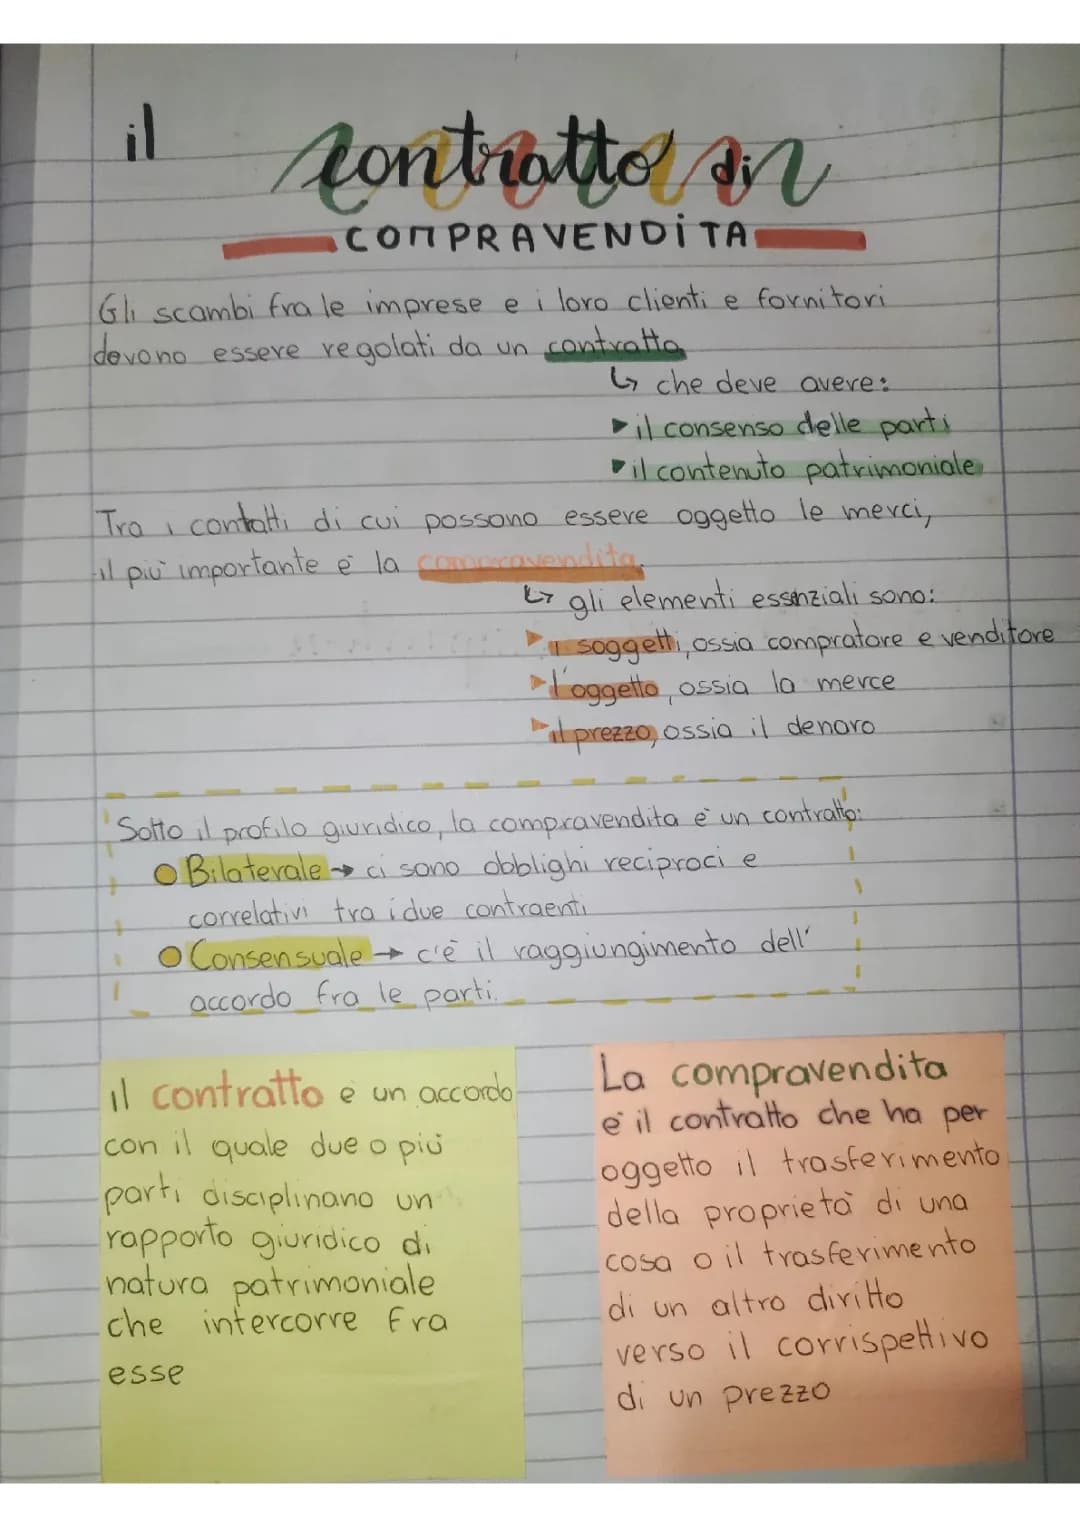 il
contratto di
COMPRAVENDiTA
Gli scambi fra le imprese e i loro clienti e fornitori
devono essere regolati da un contratto
↳ che deve avere:
▸ il consenso delle parti
▸ il contenuto patrimoniale
Tra i contatti di cui possono essere oggetto le merci,
il più importante è la compravendita.
↳ gli elementi essenziali sono:
▸ i soggetti, ossia compratore e venditore
▸ l'oggetto, ossia la merce
▸ il prezzo, ossia il denaro
Sotto il profilo giuridico, la compravendita è un contratto:
○ Bilaterale → ci sono obblighi reciproci e
correlativi tra i due contraenti
○ Consensuale → c'è il raggiungimento dell'
accordo fra le parti.
il contratto è un accordo
con il quale due o più
parti disciplinano un
rapporto giuridico di
natura patrimoniale
che intercorre fra
esse
La compravendita
è il contratto che ha per
oggetto il trasferimento
della proprietà di una
cosa o il trasferimento
di un altro diritto
verso il corrispettivo
di un prezzo